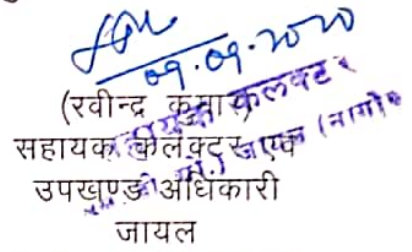 09.09.2020
(रवीन्द्र कुमार)
सहायक कलक्टर एवं
उपखण्ड अधिकारी
जायल
कलक्टर
जायल (नागौर